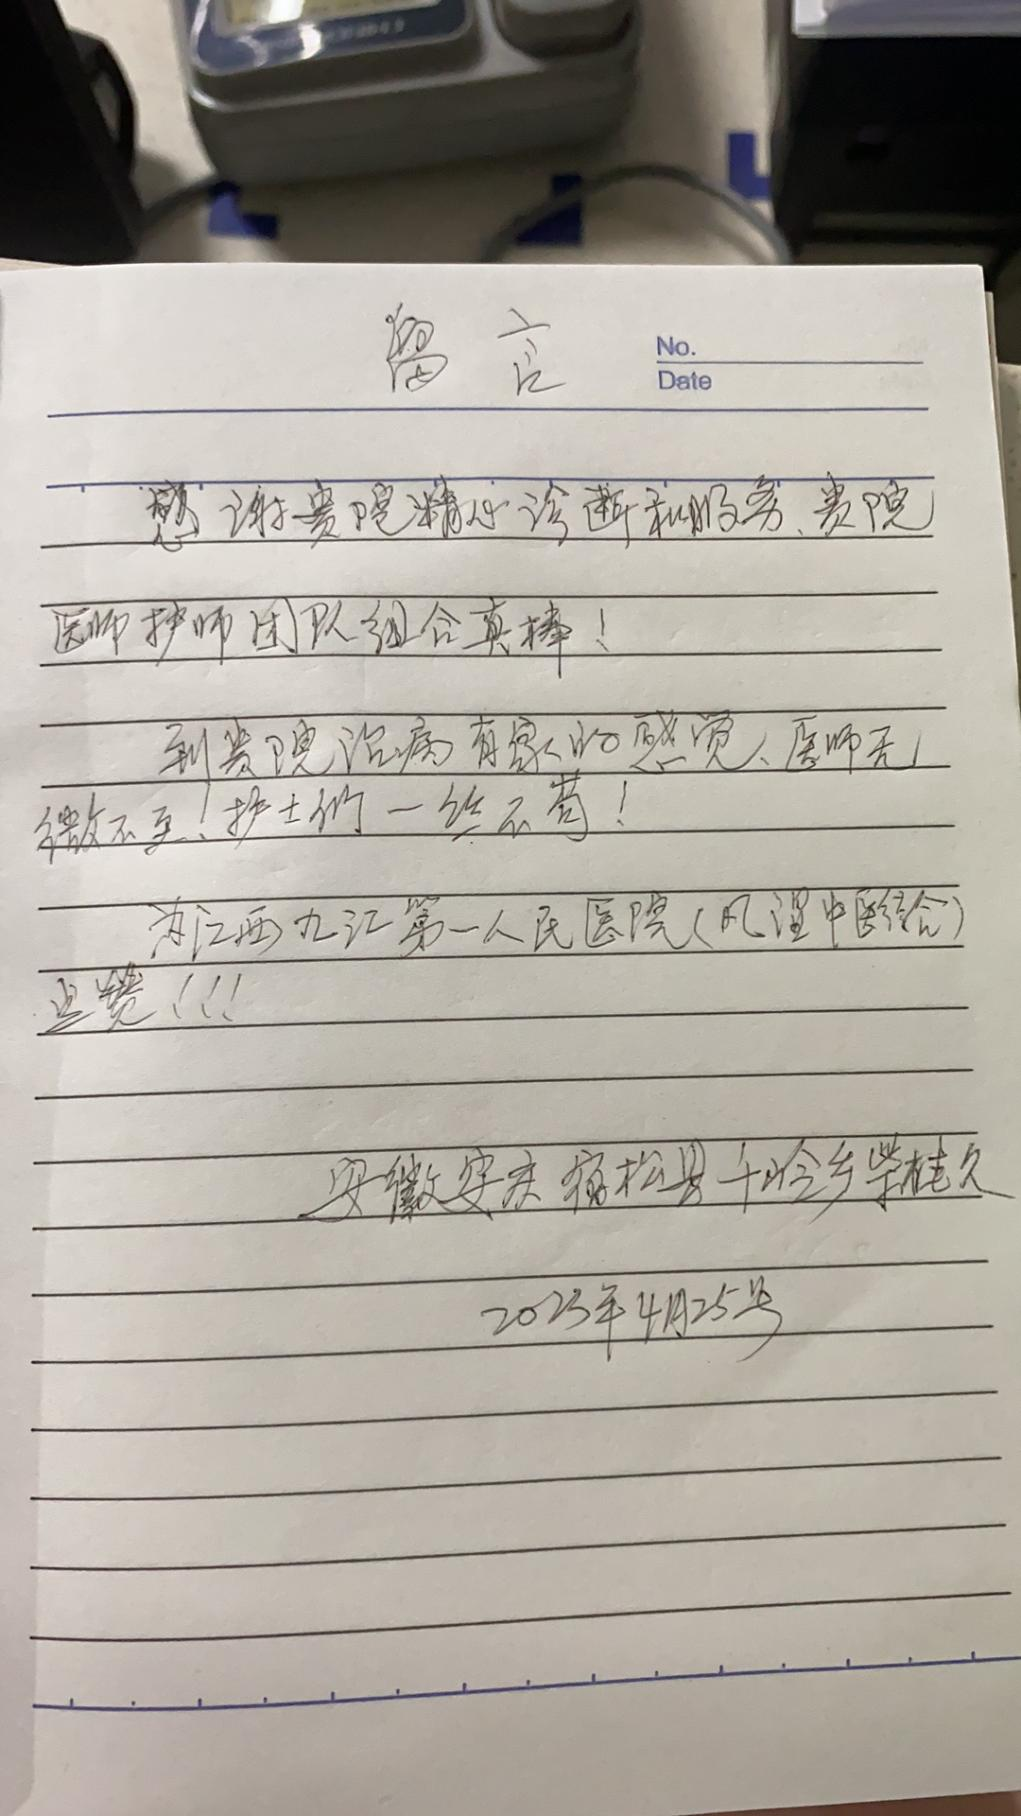 留言
No.
Date
感谢贵院精心诊断和服务、贵院
医师护师团队组合真棒！
到贵院治病有家的感觉、医师无
微不至！护士们一丝不苟！
为江西九江第一人民医院（风湿中医结合）
点赞！！！
安徽安庆宿松县千岭乡柴桂久
2023年4月25号